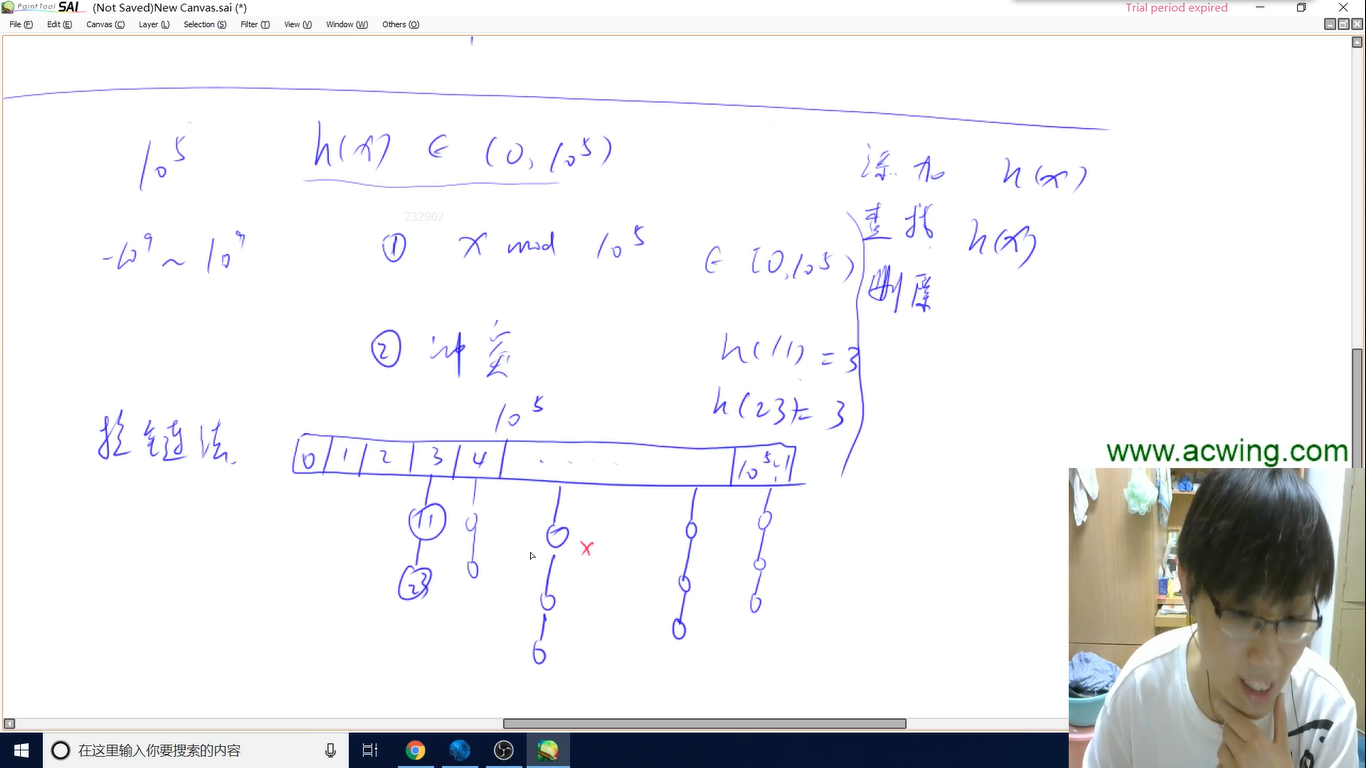 PaintTool SAI (Not Saved)New Canvas.sai (*)
Trial period expired
File (F) Edit (E) Canvas (C) Layer (L) Selection (S) Filter (T) View (V) Window (W) Others (O)
10⁵ h(x) ∈ (0, 10⁵)
添加 h(x)
232902
查找 h(x)
-10⁹ ~ 10⁹ ① x mod 10⁵ ∈ [0, 10⁵)
删除
② 冲突 h(11) = 3
10⁵ h(23) = 3
拉链法
0 1 2 3 4 ····· 10⁵-1
www.acwing.com
11
x
23
在这里输入你要搜索的内容